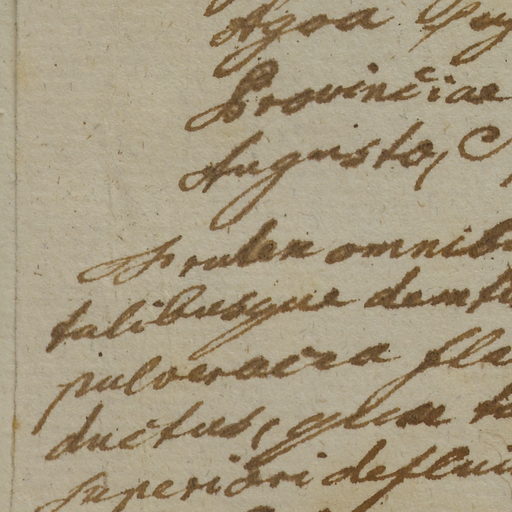 Agoa
Provinciae
Augusto,
Pruden omnib
talibusque dem
pulveracea fla
ductus, quae
superiori deflui